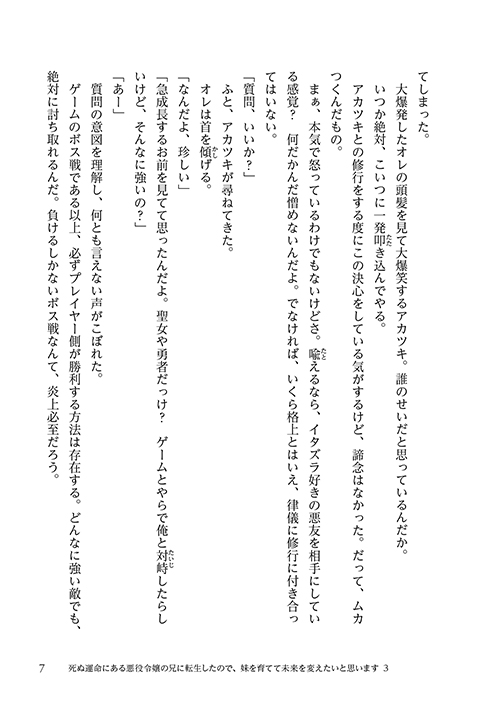 てしまった。
　大爆発したオレの頭髪を見て大爆笑するアカツキ。誰のせいだと思っているんだか。
　いつか絶対、こいつに一発叩き込んでやる。
　アカツキとの修行をする度にこの決心をしている気がするけど、諦念はなかった。だって、ムカ
つくんだもの。
　まぁ、本気で怒っているわけでもないけどさ。喩えるなら、イタズラ好きの悪友を相手にしてい
る感覚？　何だかんだ憎めないんだよ。でなければ、いくら格上とはいえ、律儀に修行に付き合っ
てはいない。
「質問、いいか？」
　ふと、アカツキが尋ねてきた。
　オレは首を傾げる。
「なんだよ、珍しい」
「急成長するお前を見てて思ったんだよ。聖女や勇者だっけ？　ゲームとやらで俺と対峙したらし
いけど、そんなに強いの？」
「あー」
　質問の意図を理解し、何とも言えない声がこぼれた。
　ゲームのボス戦である以上、必ずプレイヤー側が勝利する方法は存在する。どんなに強い敵でも、
絶対に討ち取れるんだ。負けるしかないボス戦なんて、炎上必至だろう。
7　死ぬ運命にある悪役令嬢の兄に転生したので、妹を育てて未来を変えたいと思います 3